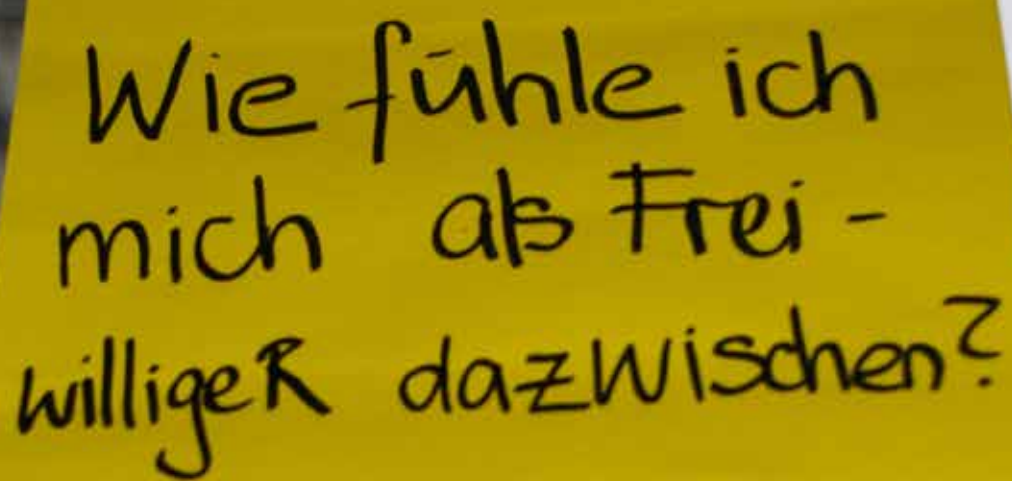 Wie fühle ich
mich als Frei-
williger dazwischen?